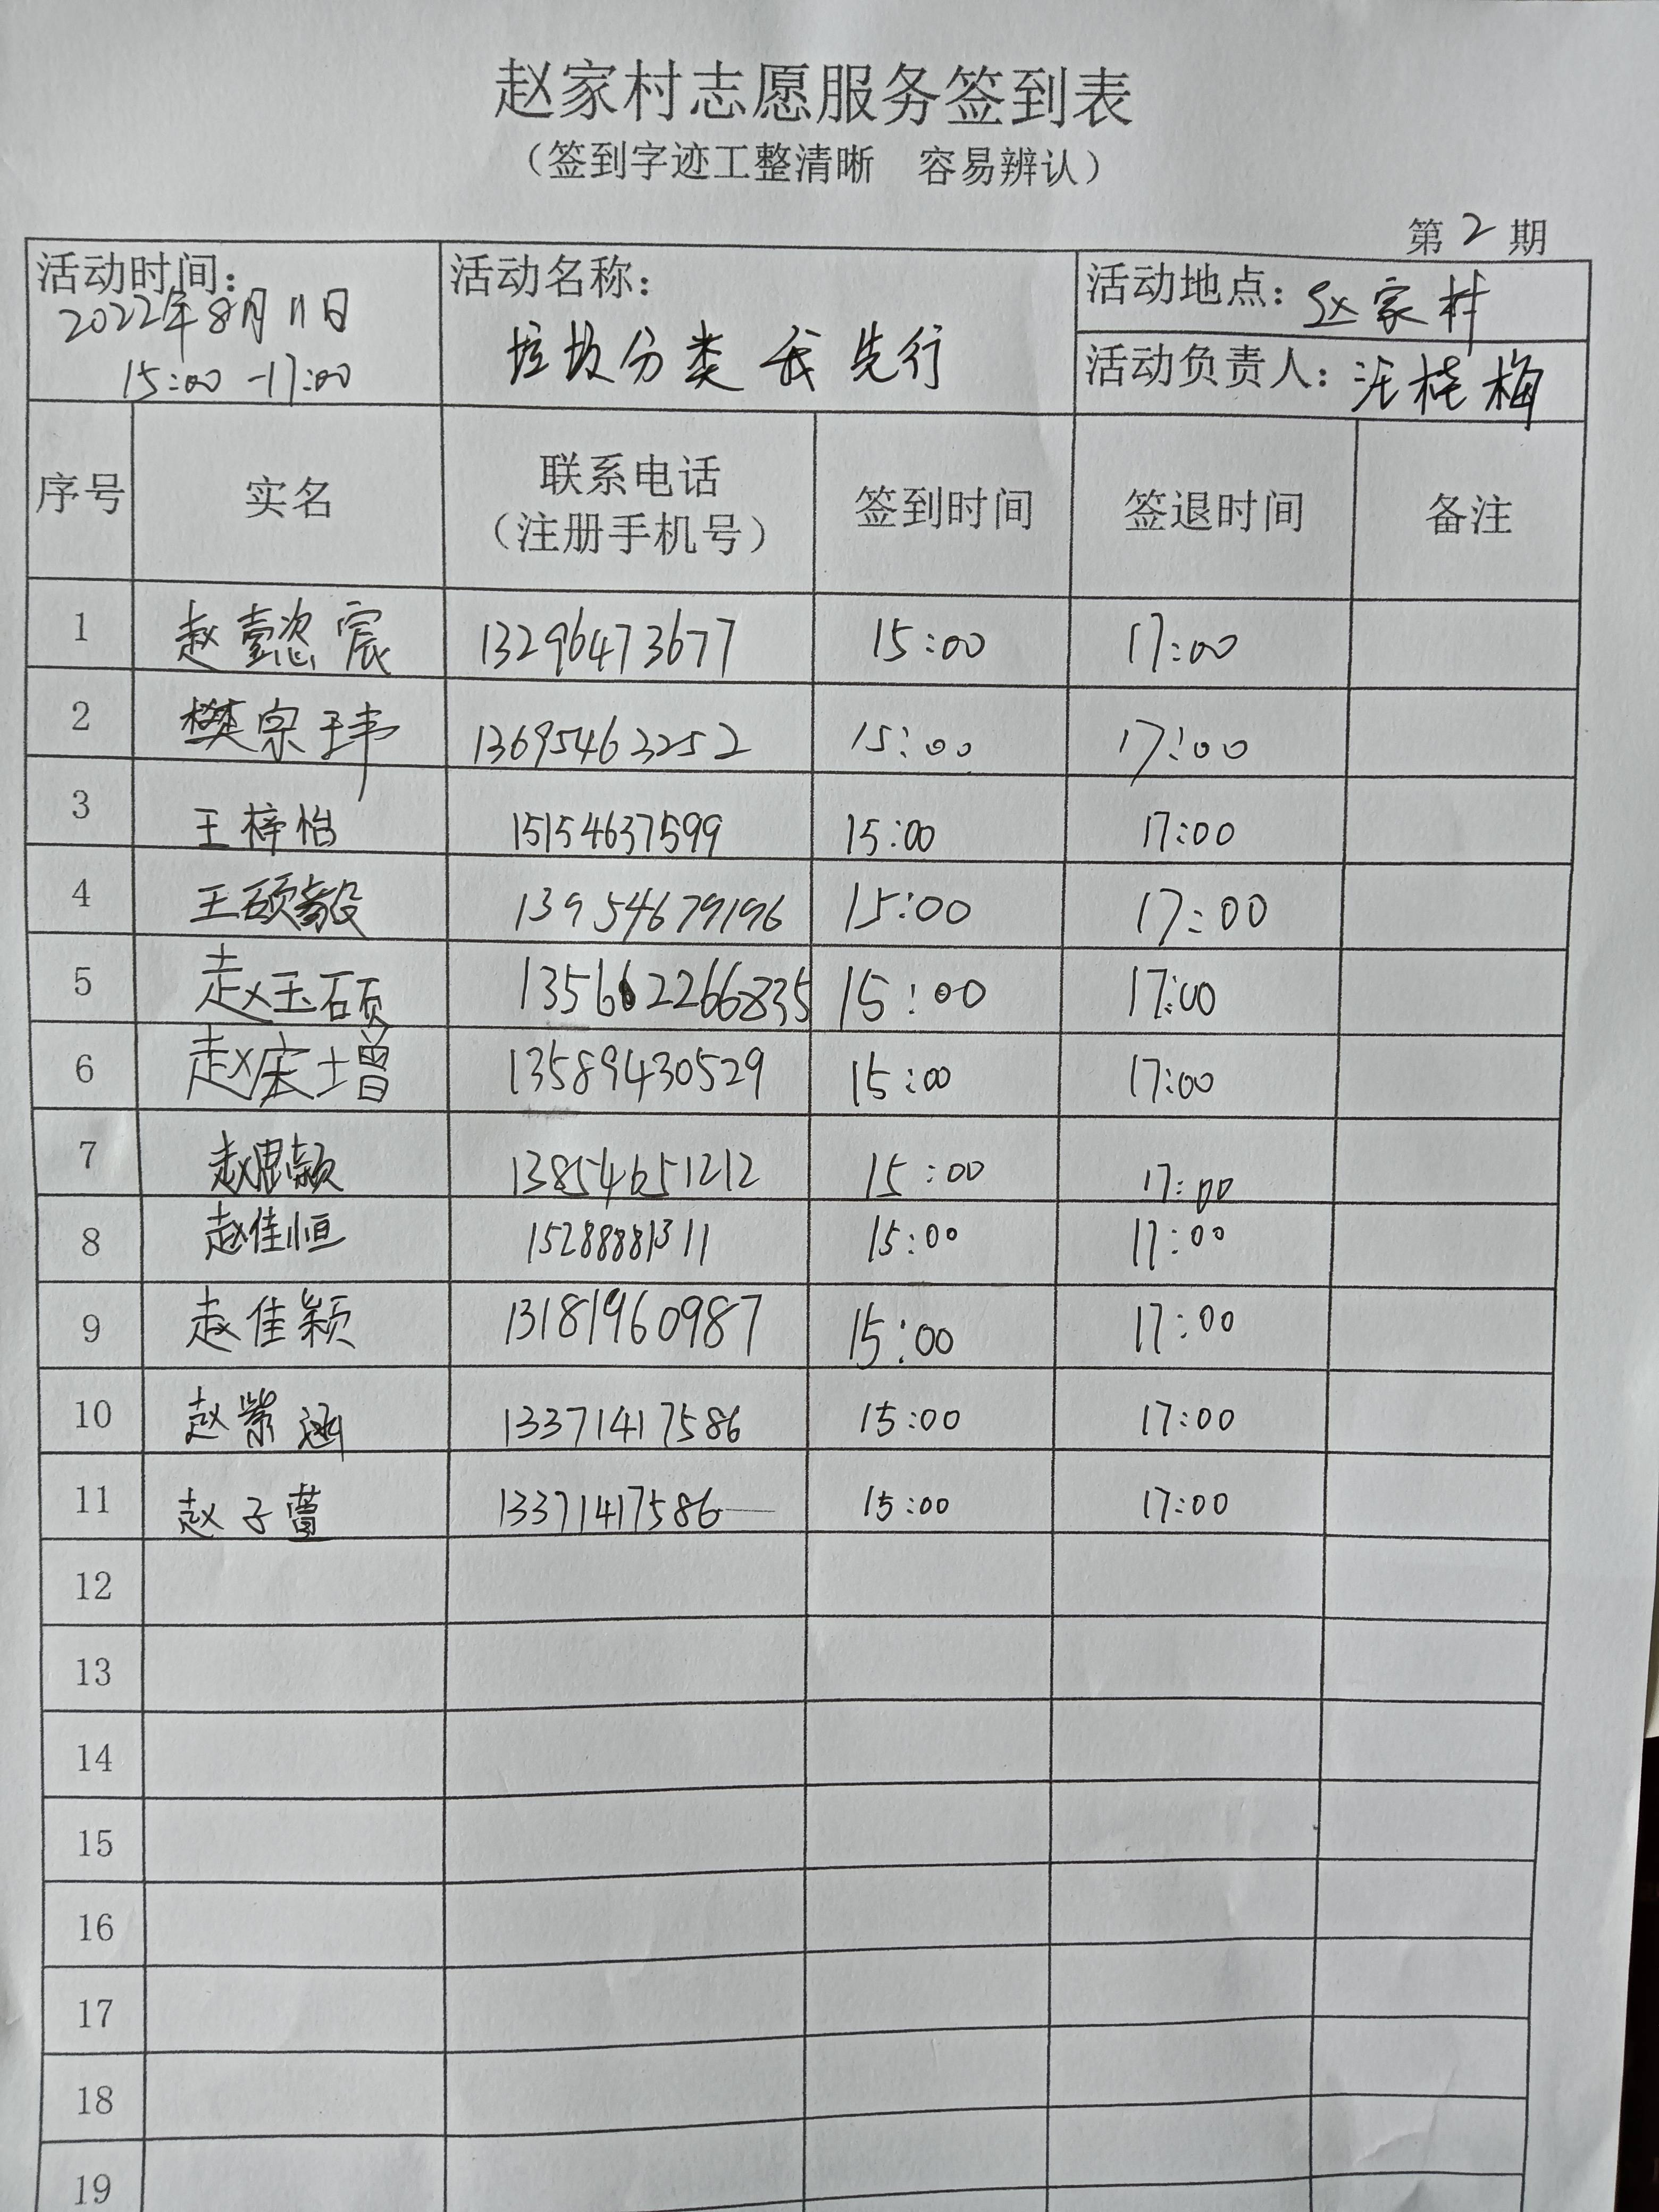 赵家村志愿服务签到表
（签到字迹工整清晰 容易辨认）
第2期
活动时间：
2022年8月11日
15:00-17:00
活动名称：
垃圾分类 我先行
活动地点：赵家村
活动负责人：
序号 实名 联系电话（注册手机号） 签到时间 签退时间 备注
1 赵壹懿宸 13296473677 15:00 17:00
2 樊宗玮 13695463252 15:00 17:00
3 王梓怡 15154637599 15:00 17:00
4 王硕毅 13954679196 15:00 17:00
5 赵玉硕 15:00 17:00
6 赵宏增 13589430529 15:00 17:00
7 赵思颖 13854651212 15:00 17:00
8 赵佳恒 15288881311 15:00 17:00
9 赵佳颖 13181960987 15:00 17:00
10 赵紫涵 13371417586 15:00 17:00
11 赵子萱 13371417586 15:00 17:00
12
13
14
15
16
17
18
19